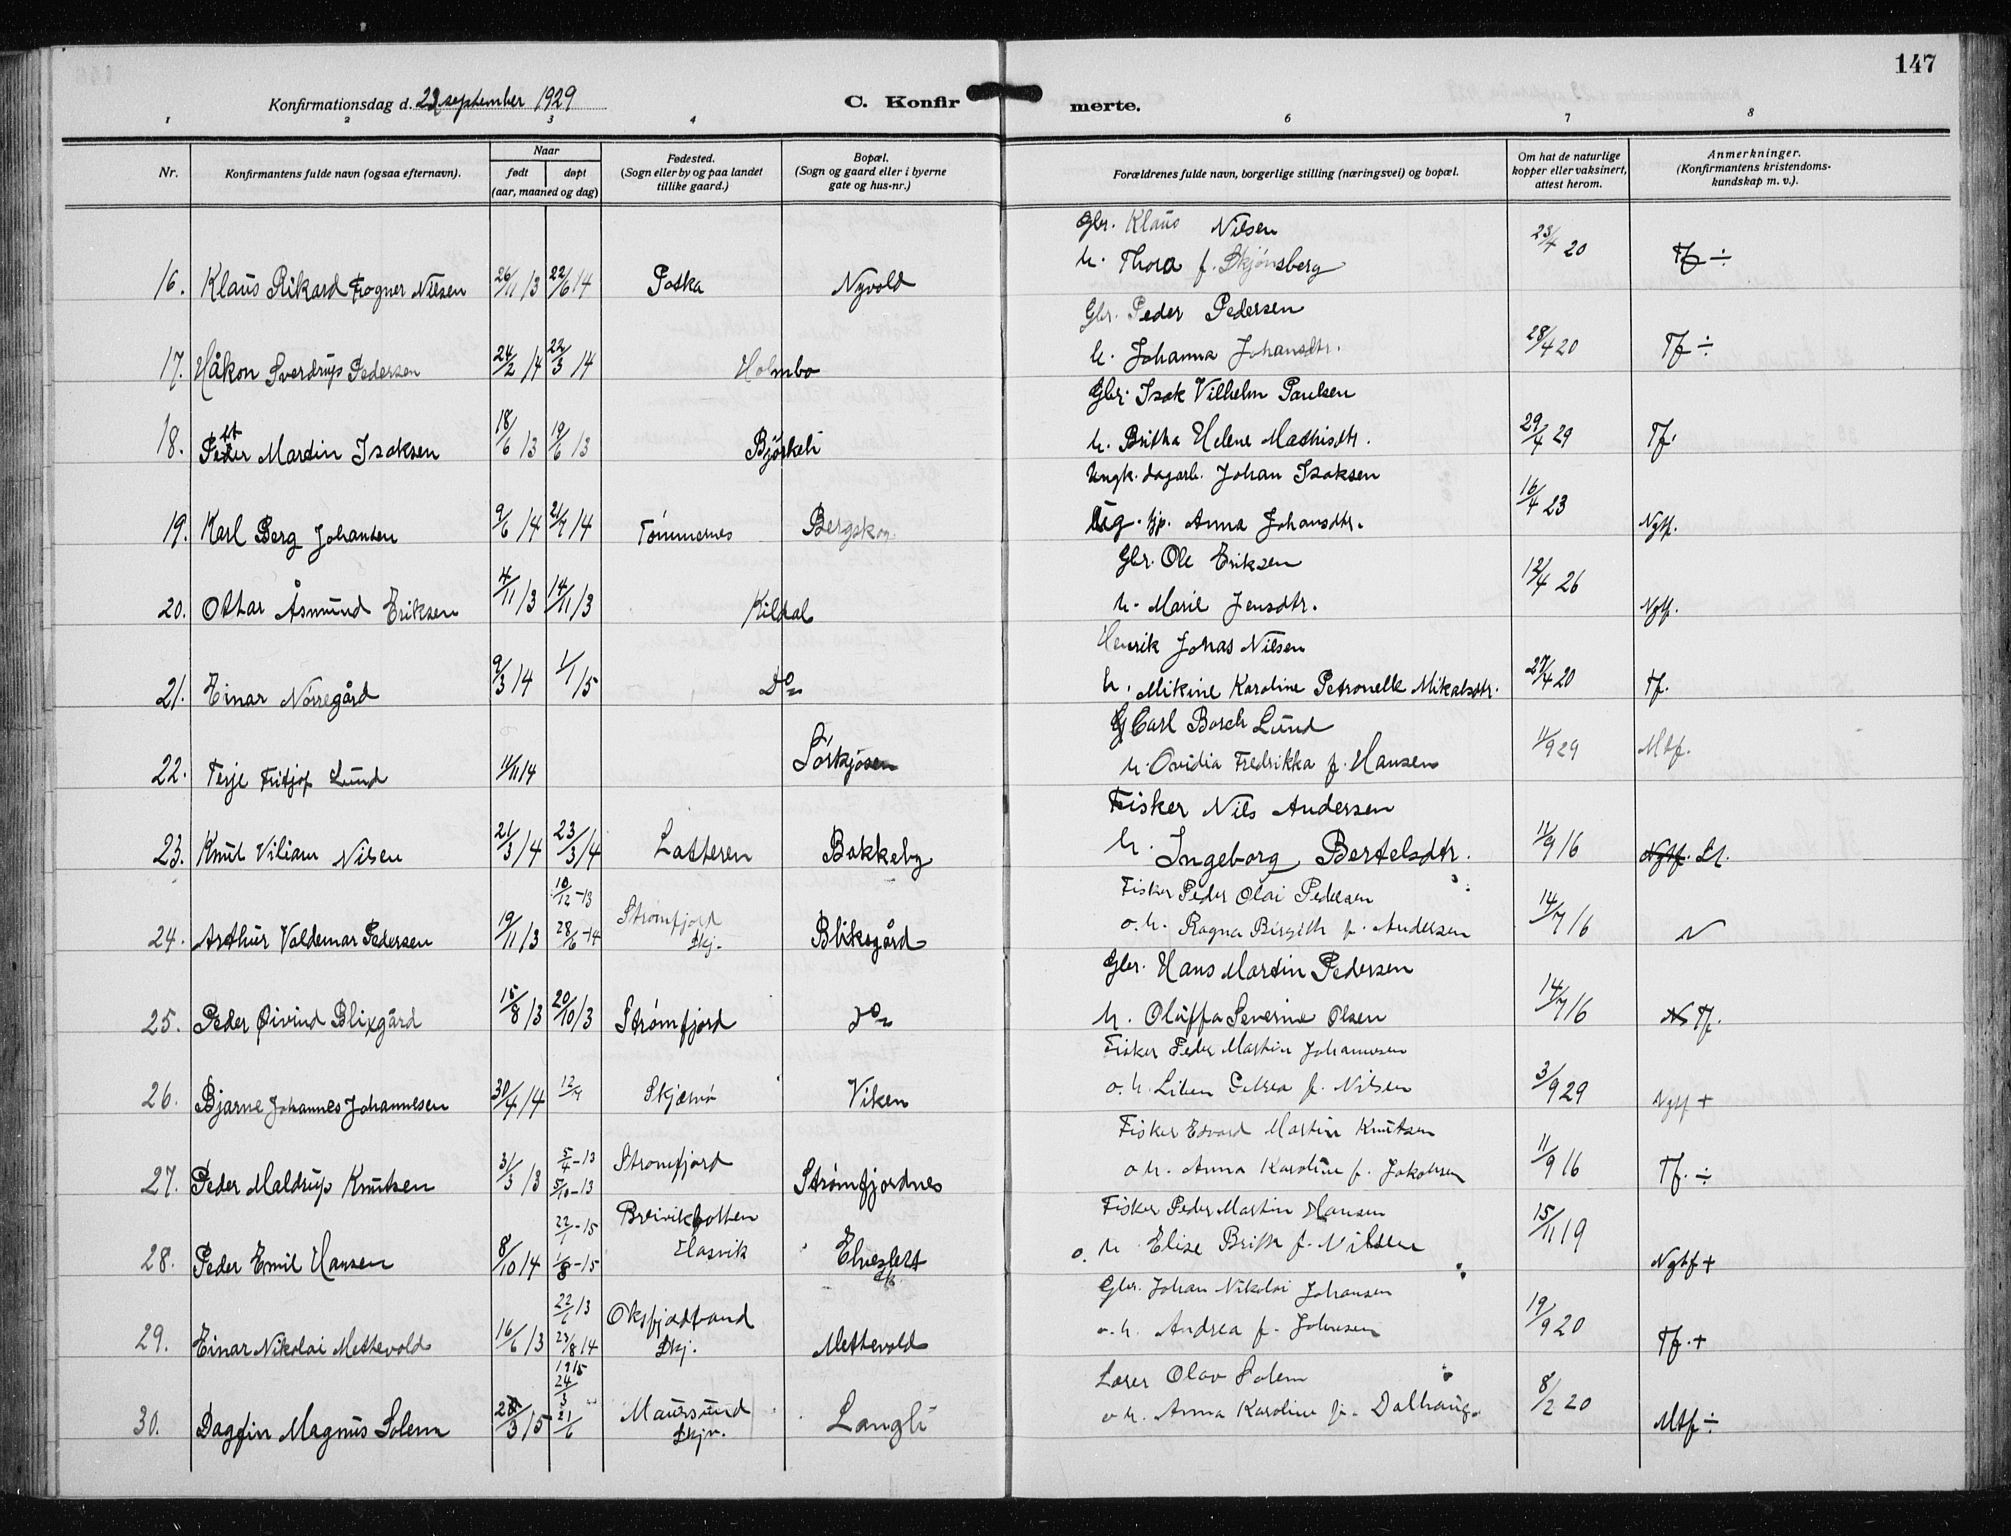 147
Konfirmationsdag d. 29 september 1929
C. Konfirmerte.
1 2 3 4 6 7 8
Nr.
Konfirmantens fulde navn (ogsaa efternavn).
Naar
født
døpt
(aar, maaned og dag)
Fødested.
(Sogn eller by og paa landet
tillike gaard.)
Bopæl.
(Sogn og gaard eller i byerne
gate og hus-nr.)
Forældrenes fulde navn, borgerlige stilling (næringsvei) og bopæl.
Om hat de naturlige
kopper eller vaksinert,
attest herom.
Anmerkninger.
(Konfirmantens kristendoms-
kundskap m. v.).
Gbr. Klaus Nilsen
16. Klaus Rikard Fogner Nilsen 26/11 13 22/6 14 Potka Nyvold h. Thora f. Skjønsberg 23/4 20 Tf ÷
Gbr. Peder Pedersen
17. Håkon Sverdrup Pedersen 24/2 14 22/3 14 Holmbo h. Johanna Johansdtr. 28/4 20 Tf ÷
Gbr. Isak Vilhelm Paulsen
18. Peder Martin Isaksen 18/6 13 19/6 13 Bjørkeli h. Britha Helene Mathisdtr. 29/4 29 Tf.
Ungk. dagarb. Johan Isaksen
19. Karl Berg Johansen 9/6 14 21/7 14 Tømmernes Bergskog. pig. tjp. Anna Johansdtr. 16/4 23 Ngtf.
Gbr. Ole Eriksen
20. Othar Åsmund Eriksen 4/11 13 14/11 13 Kildal h. Marie Jensdtr. 12/4 26 Ngtf.
Henrik Johas Nilsen
21. Einar Nørregård 9/3 14 1/1 15 Do h. Mikine Karoline Petronelle Mikalsdtr. 27/4 20 Tf.
Carl Bosch Lund
22. Terje Fritjof Lund 11/11 14 Sørkjosen h. Ovidia Fredrikka f. Hansen 11/9 29 Mtf.
Fisker Nils Andersen
23. Knut Viliam Nilsen 21/3 14 23/3 14 Latteren Bakkeby h. Ingeborg Bertelsdtr. 11/9 16 Ngtf.
10/12 - 13 Fisker Peder Olai Pedersen
24. Arthur Valdemar Pedersen 19/11 13 28/6 - 14 Strømfjord Skj. Bliksgård o. h. Ragna Birgith f. Andersen 14/7 16 N
Gbr. Hans Martin Pedersen
25. Peder Øivind Blixgård 15/8 13 20/10 13 Strømfjord Do h. Oluffa Severine Olsen 14/7 16 N Tf.
Fisker Peder Martin Johannesen
26. Bjarne Johannes Johannesen 30/4 14 12/7 Skjærvø Viken o. h. Petrea f. Nilsen 3/9 29 Ngtf +
Fisker Edvard Martin Knutsen
27. Peder Maldrup Knutsen 31/3 13 5/4 - 13 5/10 - 13 Strømfjord Strømfjordnes o h. Anna Karoline f. Jakobsen 11/9 16 Tf. ÷
22/1 - 15 Breivikbotten Fisker Peder Martin Hansen
28. Peder Emil Hansen 8/10 14 1/8 - 15 Hasvik Elveslett Sk. o. h Elise Britha f. Nilsen 15/11 19 Ngtf +
22/6 13 Oksfjordvand Gbr. Johan Nikolai Johansen
29. Einar Nikolai Mettevold 16/6 13 23/8 14 Skj. Mettevold o. h. Andrea f. Johnsen 19/9 20 Tf. +
1915 24/3 Lærer Olav Solem
30. Dagfin Magnus Solem 28/3 15 21/6 Maursund Skjv. Langli o h. Anna Karoline f. Dalhaug. 8/2 20 Mtf ÷